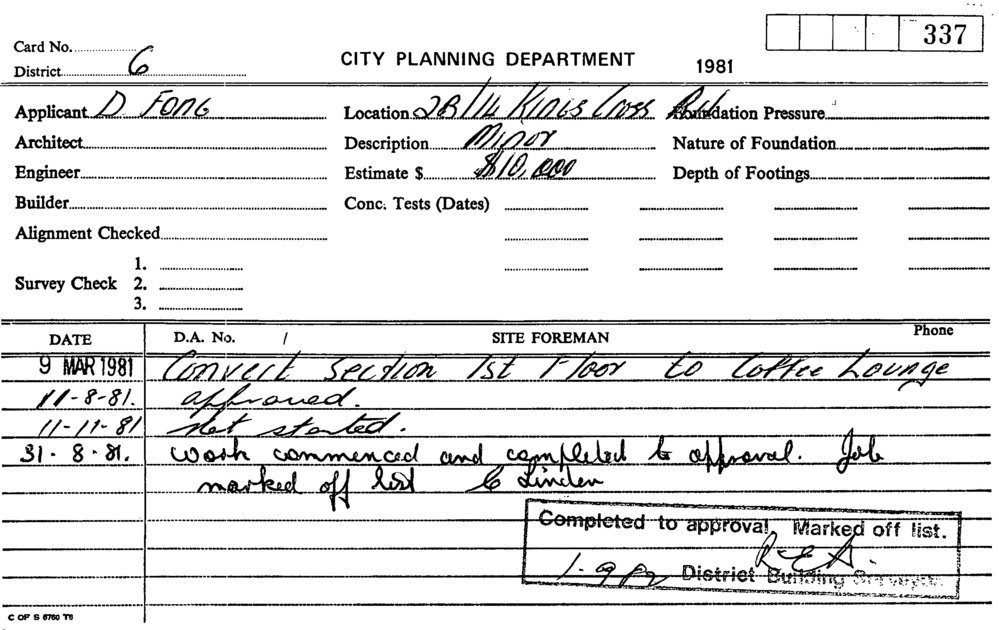 337
Card No.
District 6
CITY PLANNING DEPARTMENT 1981
Applicant D Fong Location 2B/14 Kings Cross Rd Foundation Pressure
Architect Description Minor Nature of Foundation
Engineer Estimate $ $10,000 Depth of Footings
Builder Conc. Tests (Dates)
Alignment Checked
1.
Survey Check 2.
3.
DATE D.A. No. / SITE FOREMAN Phone
9 MAR 1981 Convert section 1st Floor to Coffee Lounge
11-8-81. approved.
11-11-81 Not started.
31-8-81. work commenced and completed to approval. Job
marked off list C Linden
Completed to approval. Marked off list.
District Building Surveyor.
C OF S 6760 T6